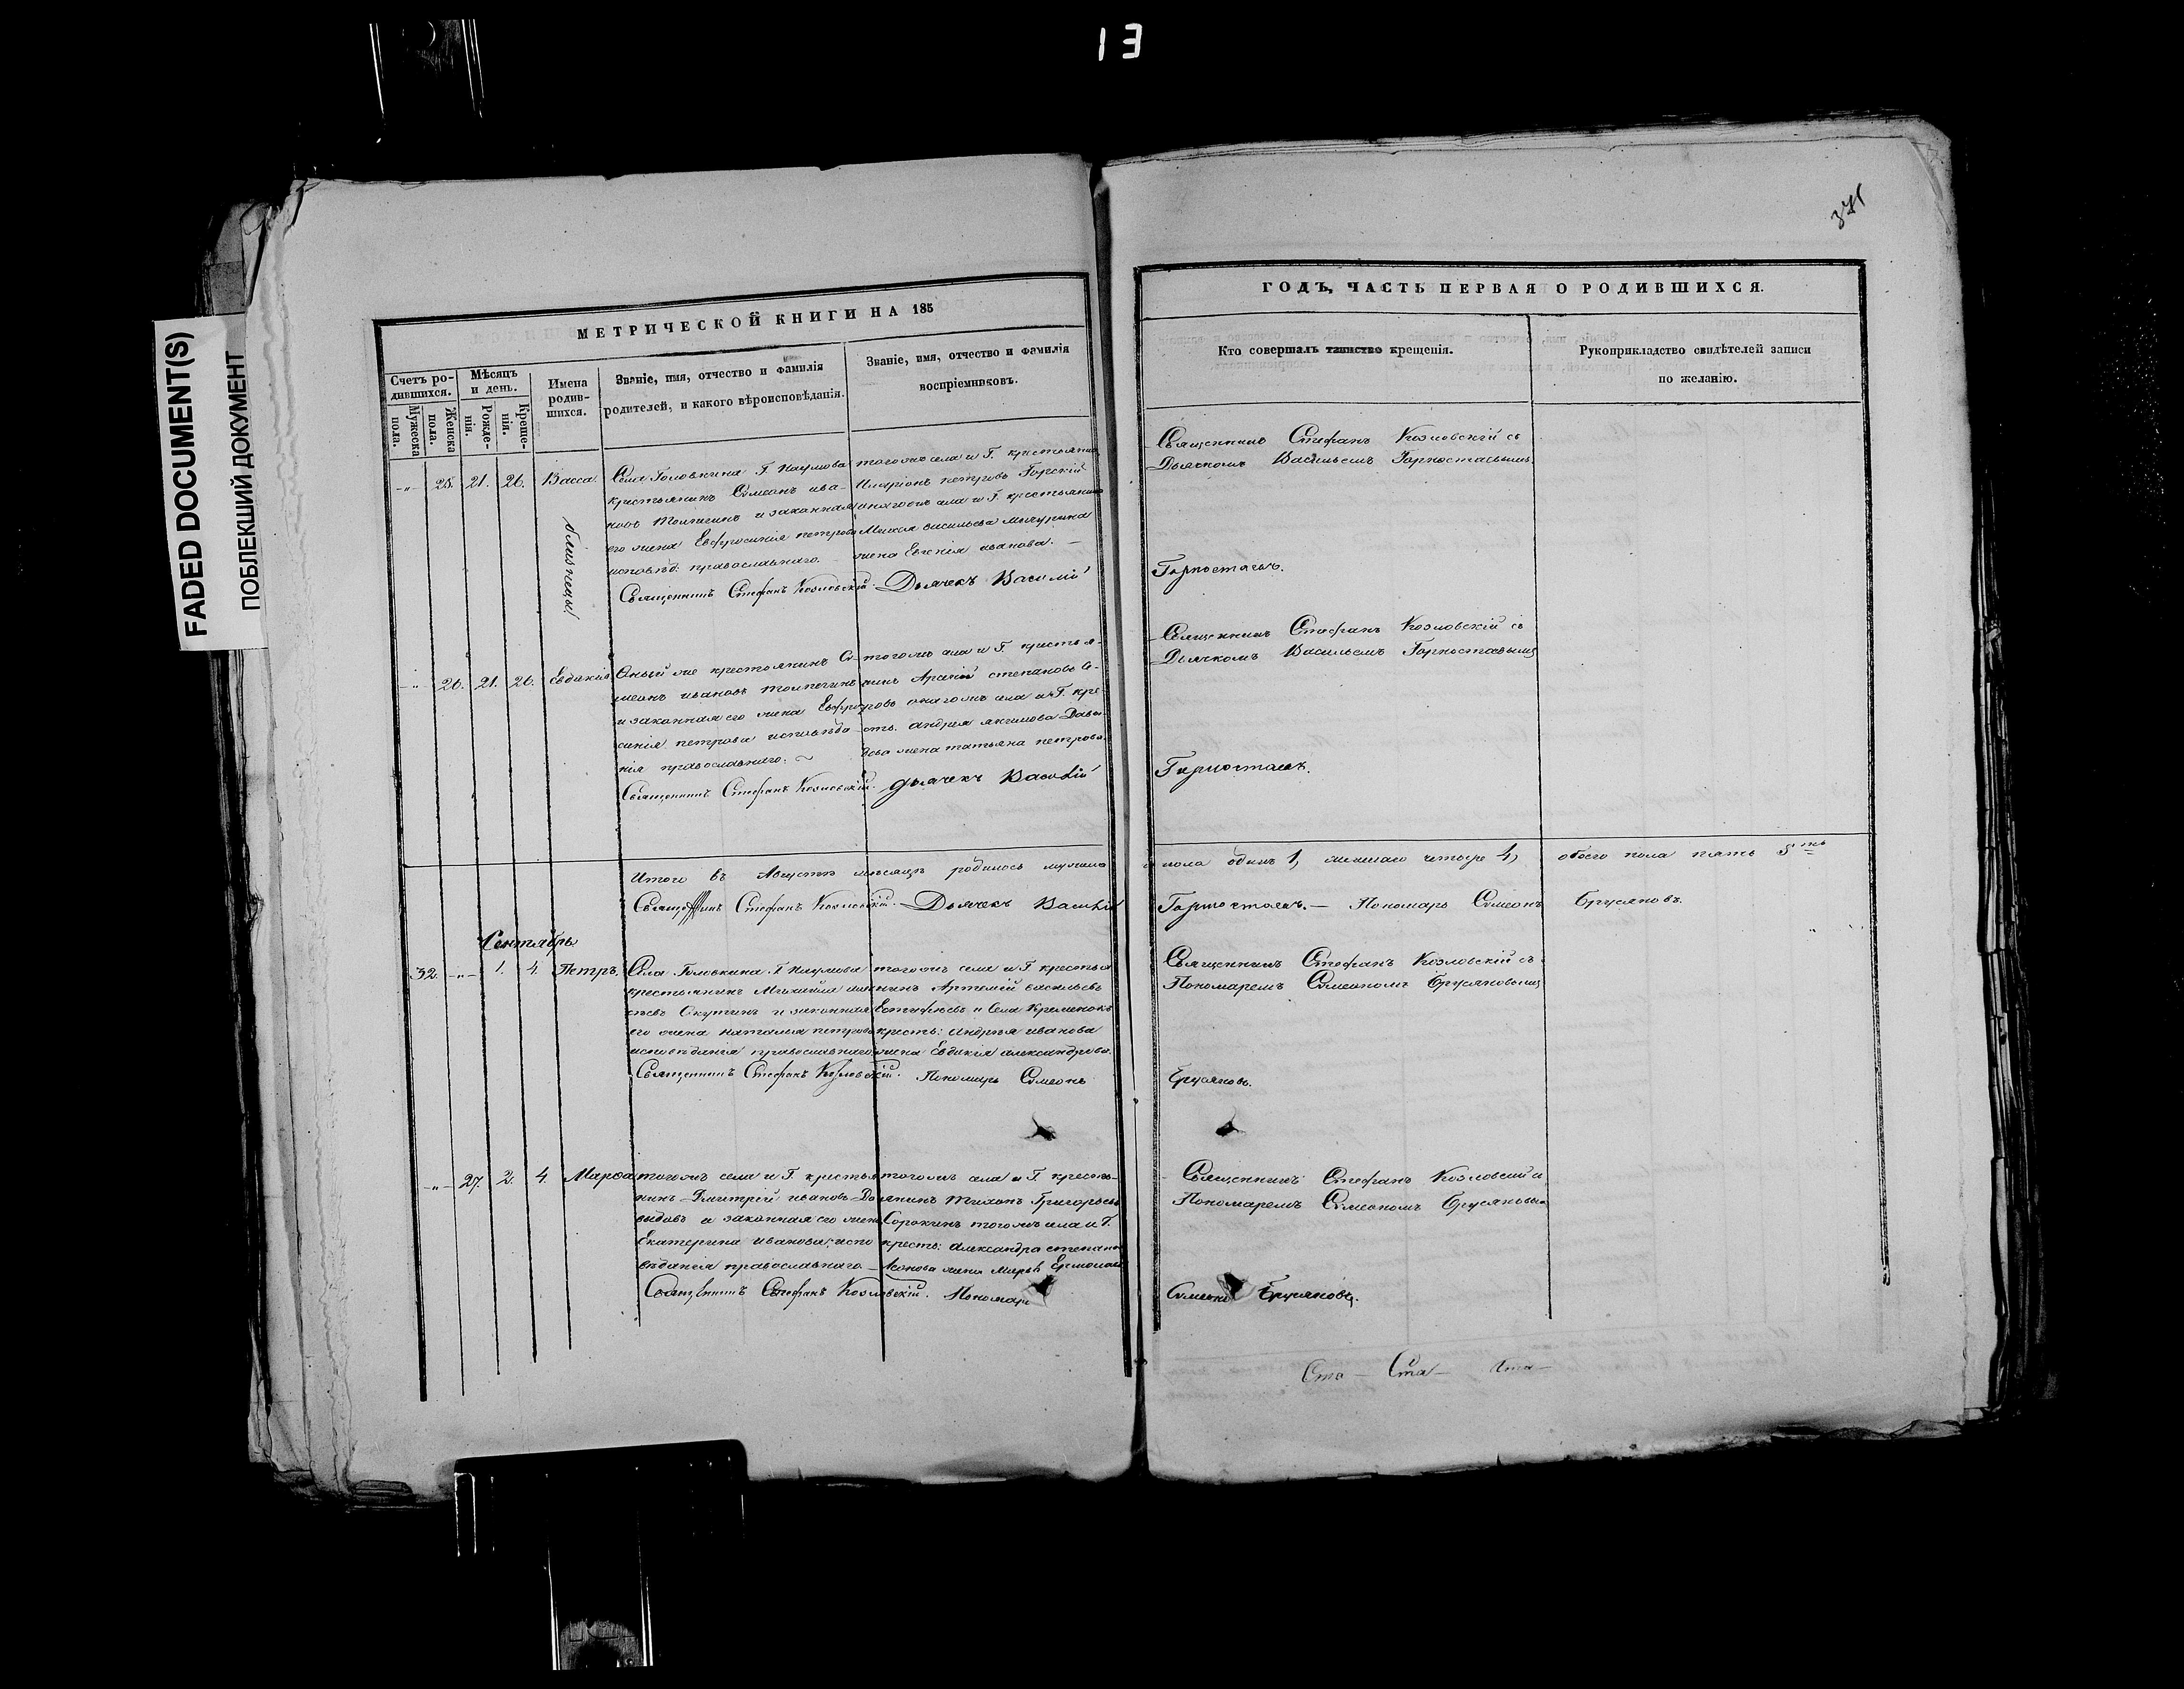 13
371
FADED DOCUMENT(S)
ПОБЛЕКШИЙ ДОКУМЕНТ
МЕТРИЧЕСКОЙ КНИГИ НА 185
Счетъ ро-
дившихся.
Мужеска
пола.
Женска
пола.
Мѣсяцъ
и день.
Рожде-
нія.
Креще-
нія.
Имена
родив-
шихся.
Званіе, имя, отчество и фамилія
родителей, и какого вѣроисповѣданія.
Званіе, имя, отчество и фамилія
воспріемниковъ.
-„- 25. 21. 26. Васса.
близнецы
Села Головкина Г. Наумова
крестьянинъ Симеонъ ива-
новъ и законная
его жена Евфросинія петрова
исповѣд: православнаго.
Священникъ Стефанъ Козловскій.
тогожъ села и Г. крестьянинъ
Иларіонъ петровъ Горскій
онагожъ села и Г. крестьянина
васильева Мичурина
жена Евгенія иванова. —
Дьячекъ Василій
-„- 26. 21. 26. Евдокія
Оный же крестьянинъ Си-
меонъ ивановъ
и законная его жена Евфро-
синія петрова исповѣда-
нія православнаго. ~
Священникъ Стефанъ Козловскій.
тогожъ села и Г. крестья-
нинъ степановъ
онагожъ села и Г. кре-
сть. андрея акимова Давы-
дова жена татьяна петрова.
дьячекъ Василій
Итого въ Августѣ мѣсяцѣ родилось мужеска
Священникъ Стефанъ Козловскій. Дьячекъ Василій
Сентябрь
32. -„- 1. 4. Петръ.
Села Головкина Г. Наумова
крестьянинъ Михаилъ
и законная
его жена наталья петрова
исповѣданія православнаго
Священникъ Стефанъ Козловскій.
тогожъ села и Г. крестья-
нинъ Артемій васильевъ
Естифѣевъ и Села Кременокъ
крестъ: андрея иванова
жена Евдокія александрова.
Пономарь Симеонъ
-„- 27. 2. 4. Марѳа
тогожъ села и Г. крестья-
нинъ Дмитрій ивановъ Да-
выдовъ и законная его жена
Екатерина иванова; испо-
вѣданія православнаго —
Священникъ Стефанъ Козловскій.
тогожъ села и Г. кресть-
янинъ Тихонъ Григорьевъ
Сорокинъ тогожъ села и Г.
крестъ: Александра степано-
жена
Пономарь
ГОДЪ, ЧАСТЬ ПЕРВАЯ О РОДИВШИХСЯ.
Кто совершалъ таинство крещенія.
Рукоприкладство свидѣтелей записи
по желанію.
Священникъ Стефанъ Козловскій съ
Дьячкомъ Васильемъ Горностаевымъ.
Горностаевъ.
Священникъ Стефанъ Козловскій съ
Дьячкомъ Васильемъ Горностаевымъ
Горностаевъ.
пола одинъ 1, женскаго четыре 4, обоего пола пять 5ть
Горностаевъ. — Пономарь Симеонъ Брусяновъ.
Священникъ Стефанъ Козловскій съ
Пономаремъ Симеономъ Брусяновымъ
Брусяновъ.
Священникъ Стефанъ Козловскій и
Пономаремъ Симеономъ Брусяновымъ
Симеонъ Брусяновъ.
Ста —